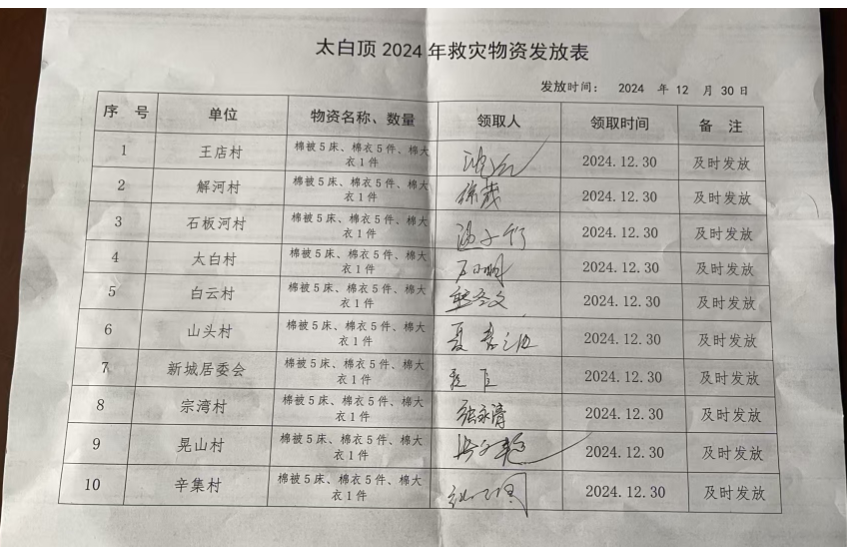 太白顶 2024 年救灾物资发放表
发放时间： 2024 年 12 月 30 日
序 号 单位 物资名称、数量 领取人 领取时间 备 注
1 王店村 棉被 5 床、棉衣 5 件、棉大衣 1 件 2024.12.30 及时发放
2 解河村 棉被 5 床、棉衣 5 件、棉大衣 1 件 2024.12.30 及时发放
3 石板河村 棉被 5 床、棉衣 5 件、棉大衣 1 件 2024.12.30 及时发放
4 太白村 棉被 5 床、棉衣 5 件、棉大衣 1 件 2024.12.30 及时发放
5 白云村 棉被 5 床、棉衣 5 件、棉大衣 1 件 2024.12.30 及时发放
6 山头村 棉被 5 床、棉衣 5 件、棉大衣 1 件 2024.12.30 及时发放
7 新城居委会 棉被 5 床、棉衣 5 件、棉大衣 1 件 2024.12.30 及时发放
8 宗湾村 棉被 5 床、棉衣 5 件、棉大衣 1 件 张永清 2024.12.30 及时发放
9 晃山村 棉被 5 床、棉衣 5 件、棉大衣 1 件 2024.12.30 及时发放
10 辛集村 棉被 5 床、棉衣 5 件、棉大衣 1 件 2024.12.30 及时发放